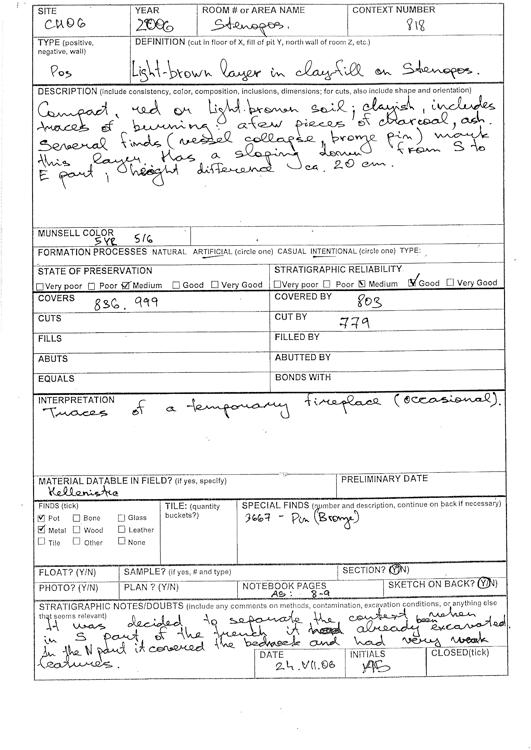 SITE YEAR ROOM # or AREA NAME CONTEXT NUMBER
CH06 2006 Stenopos. 818
TYPE (positive, negative, wall) DEFINITION (cut in floor of X, fill of pit Y, north wall of room Z, etc.)
Pos Light-brown layer in clayfill on Stenopos.
DESCRIPTION (include consistency, color, composition, inclusions, dimensions; for cuts, also include shape and orientation)
Compact, red or light-brown soil; clayish, includes
traces of burning: a few pieces of charcoal, ash.
Several finds (vessel collapse, bronze pin) mark
this layer. Has a sloping down from S to
E part; height difference ca. 20 cm.
MUNSELL COLOR
5YR 5/6
FORMATION PROCESSES NATURAL ARTIFICIAL (circle one) CASUAL INTENTIONAL (circle one) TYPE:
STATE OF PRESERVATION STRATIGRAPHIC RELIABILITY
Very poor Poor Medium Good Very Good Very poor Poor Medium Good Very Good
COVERS 836, 999 COVERED BY 803
CUTS CUT BY 779
FILLS FILLED BY
ABUTS ABUTTED BY
EQUALS BONDS WITH
INTERPRETATION
Traces of a temporary fireplace (occasional).
MATERIAL DATABLE IN FIELD? (if yes, specify) PRELIMINARY DATE
FINDS (tick) TILE: (quantity buckets?) SPECIAL FINDS (number and description, continue on back if necessary)
Pot Bone Glass 3667 - Pin (Bronze)
Metal Wood Leather
Tile Other None
FLOAT? (Y/N) SAMPLE? (if yes, # and type) SECTION? (Y/N)
PHOTO? (Y/N) PLAN ? (Y/N) NOTEBOOK PAGES SKETCH ON BACK? (Y/N)
AS: 8-9
STRATIGRAPHIC NOTES/DOUBTS (include any comments on methods, contamination, excavation conditions, or anything else
that seems relevant)
It was decided to separate the context when
in S part of the trench it had been already excavated.
In the N part it covered the bedrock and had very weak
features.
DATE INITIALS CLOSED(tick)
24.VII.06 AS